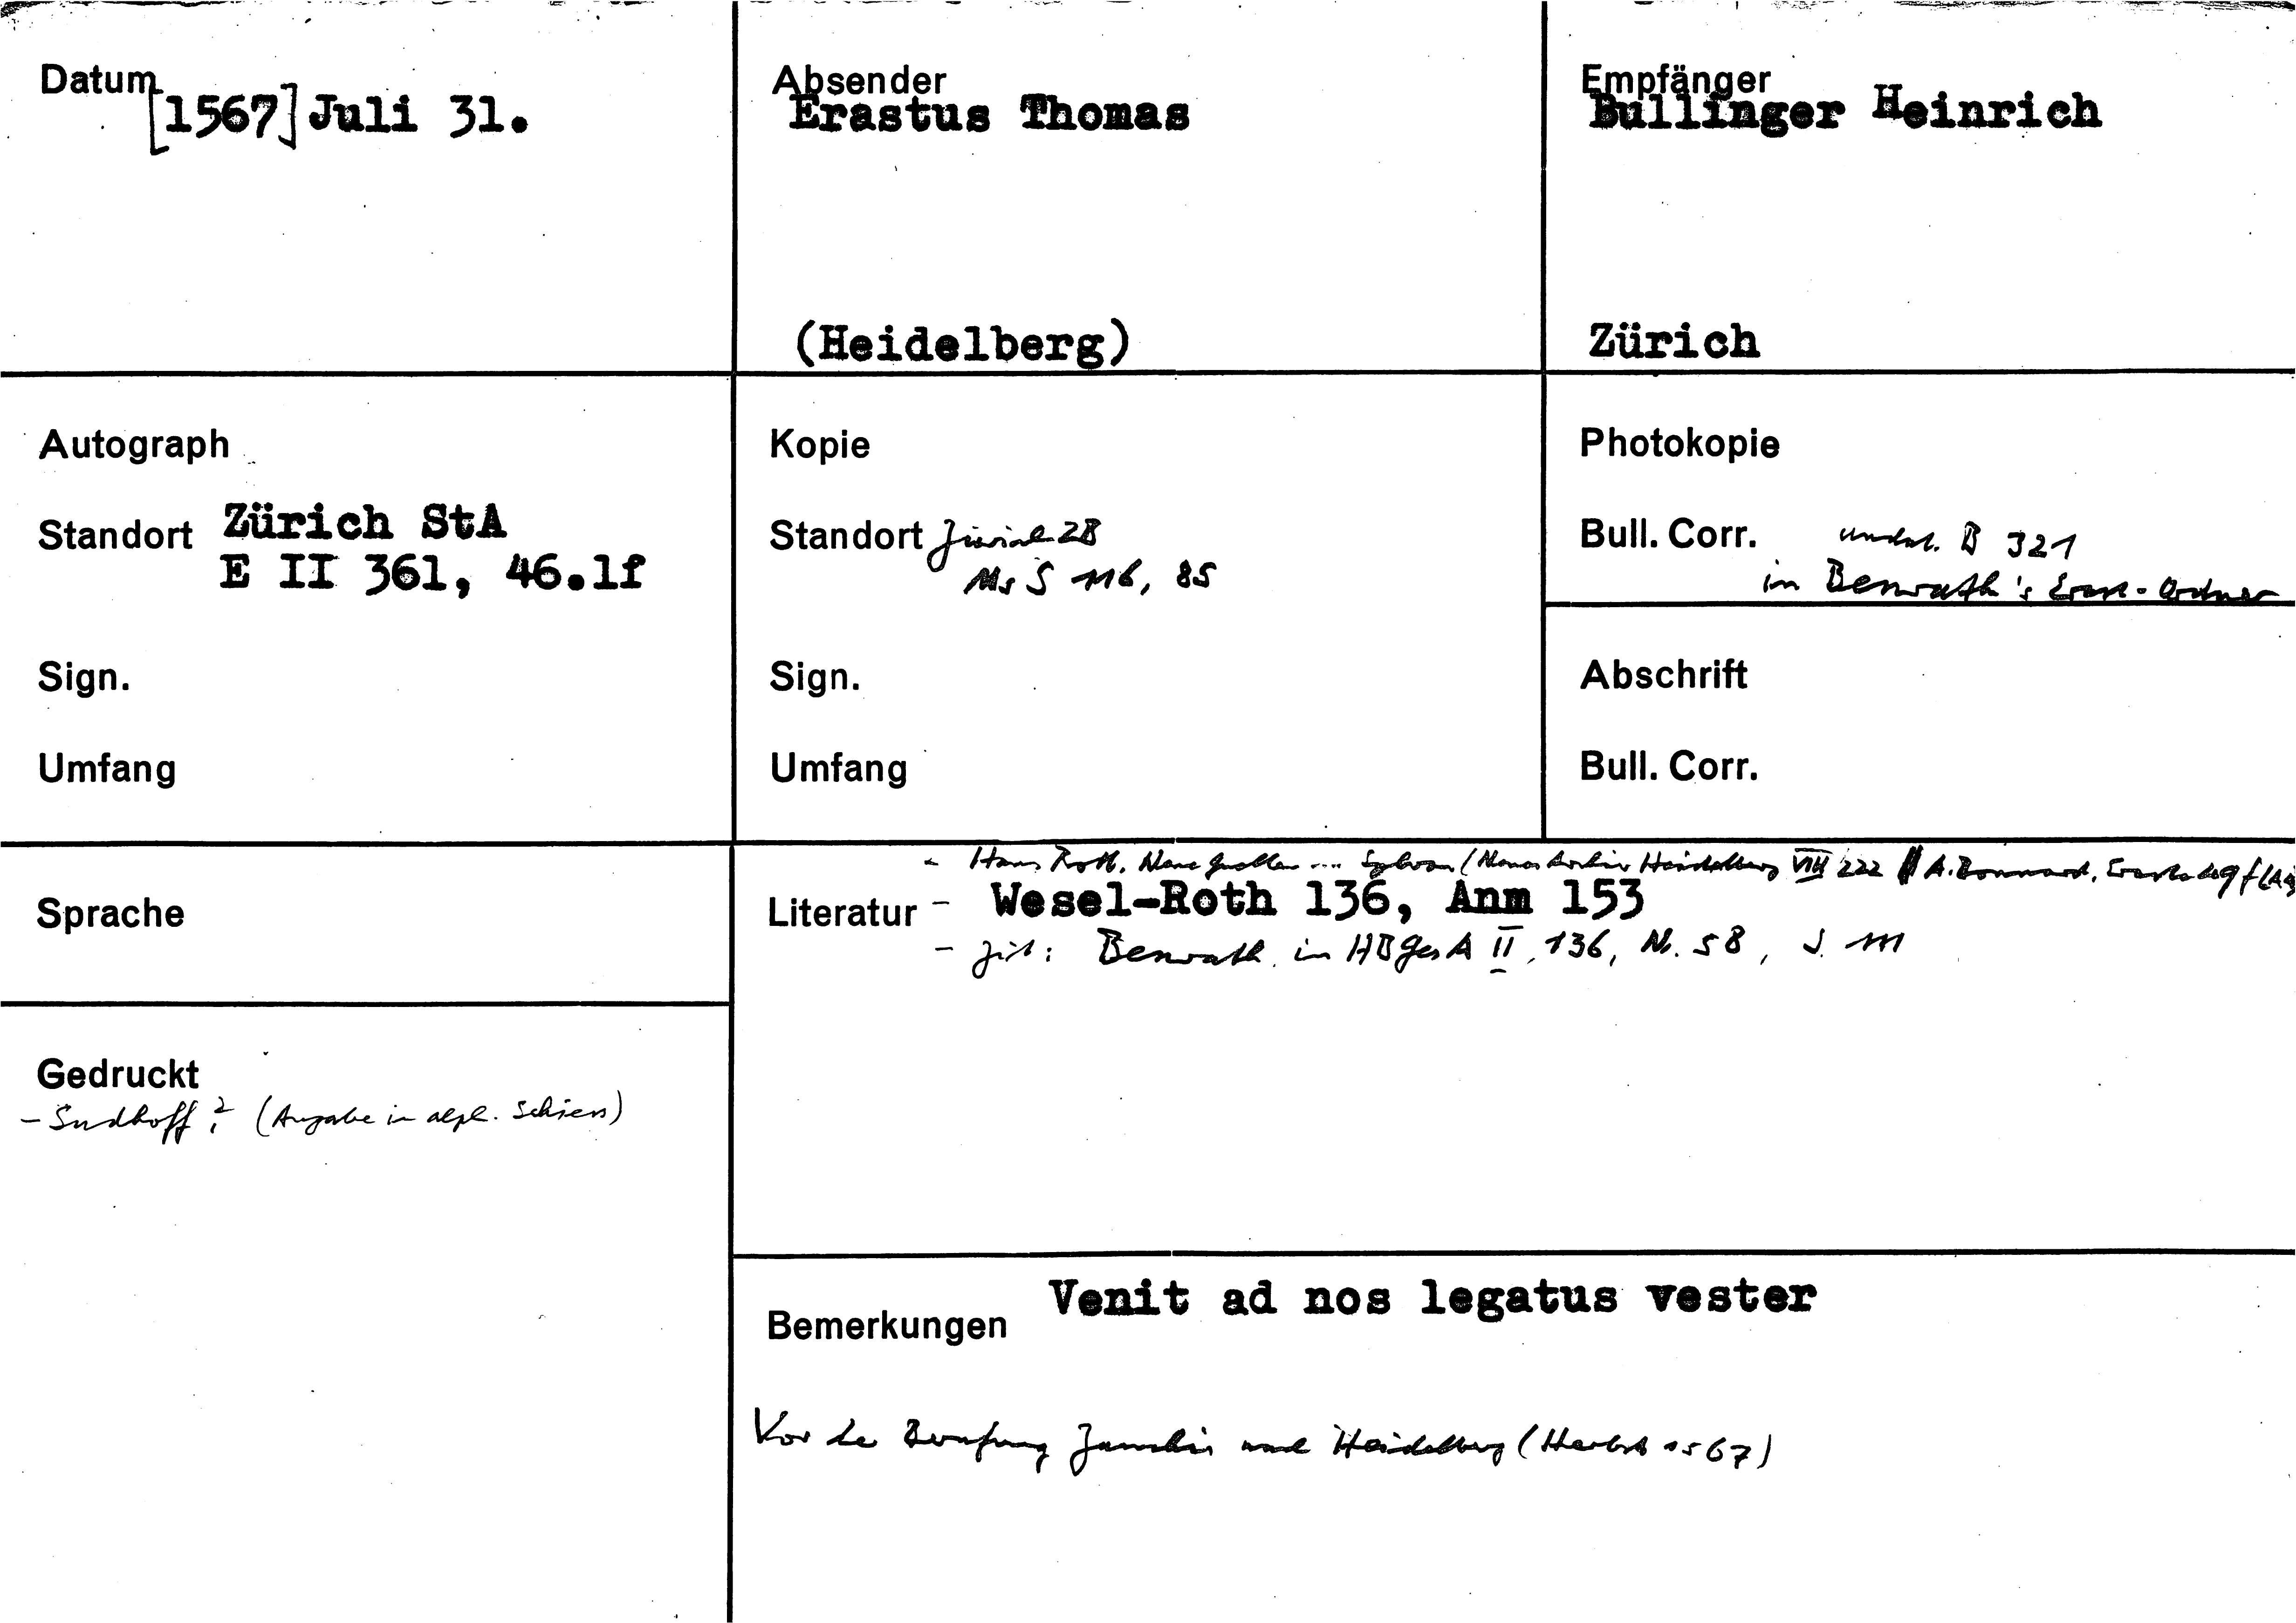 Datum
[1567] Juli 31.
Absender
Erastus Thomas
(Heidelberg)
Empfänger
Bullinger Heinrich
Zürich
Autograph
Standort Zürich StA
E II 361, 46.1f
Sign.
Umfang
Kopie
Standort Zürich ZB
Ms S 116, 85
Sign.
Umfang
Photokopie
Bull. Corr. undat. B 321
in Benrath's Erast-Ordner
Abschrift
Bull. Corr.
Sprache
Gedruckt
- Sudhoff? (Angabe in alph. Schiess)
- Hans Rott, Neue Quellen ... Sylvan (Neues Archiv Heidelberg VIII 222 A. Bonnard,
Literatur - Wesel-Roth 136, Anm 153
- zit: Benrath in HBGesA II, 136, Nr. 58, S. 111
Bemerkungen Venit ad nos legatus vester
Vor der Berufung Zanchis nach Heidelberg (Herbst 1567)